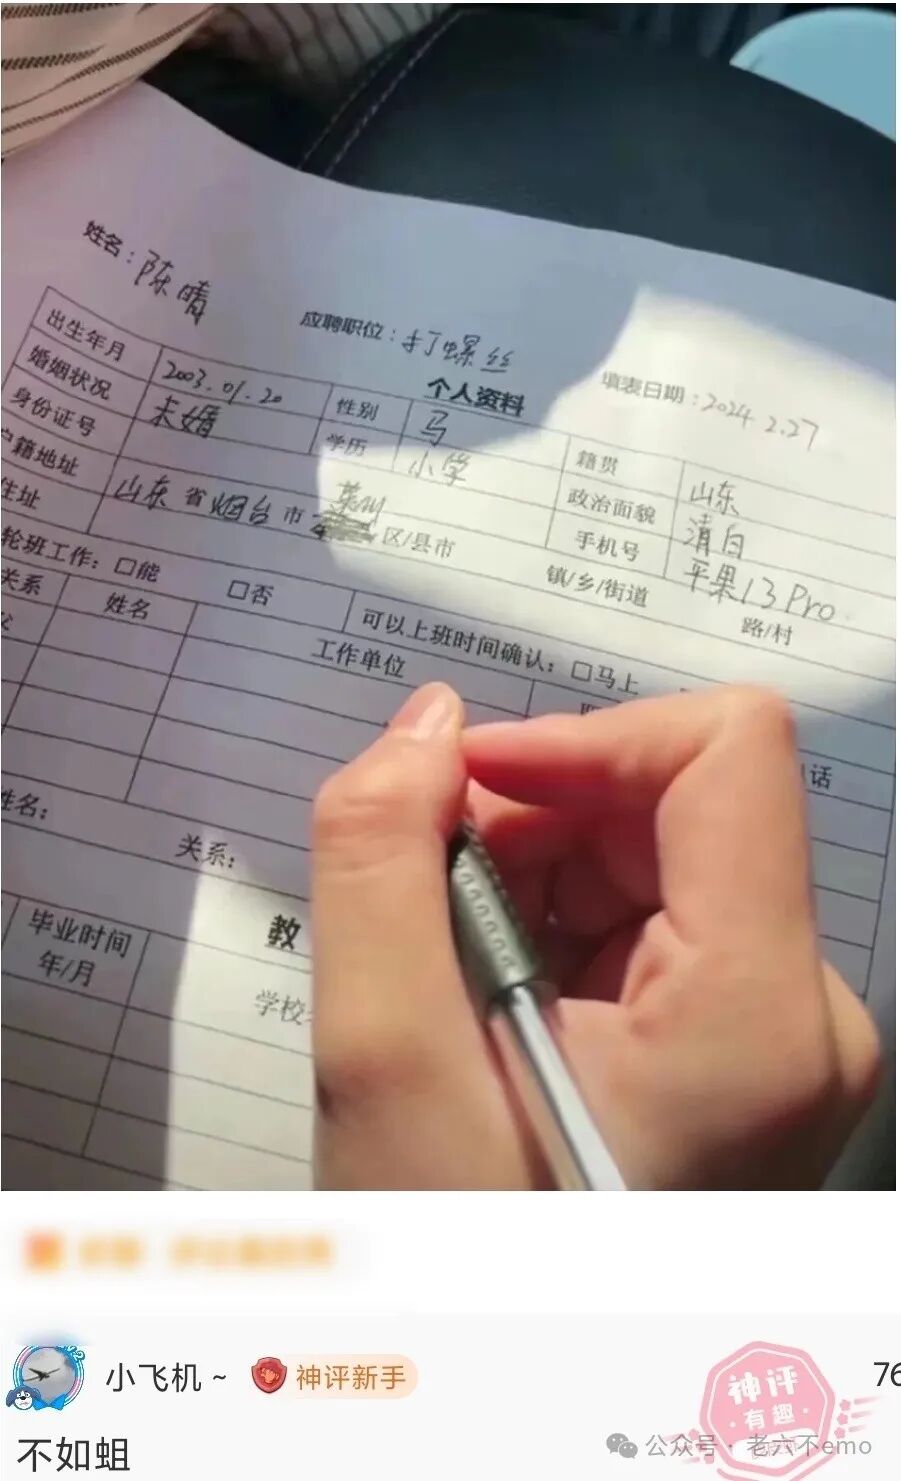 姓名：陈晴
应聘职位：打螺丝
填表日期：2024 2.27
个人资料
出生年月 2003.01.20 性别 马 籍贯 山东
婚姻状况 未婚 学历 小学 政治面貌 清白
身份证号 手机号 平果13Pro
户籍地址 山东省烟台市莱州区/县市 镇/乡/街道 路/村
住址
轮班工作：□能 □否 可以上班时间确认：□马上
关系 姓名 工作单位
话
姓名：
关系：
教
毕业时间
年/月
学校
小飞机~ 神评新手 76
不如蛆
神评
有趣
公众号·老六不emo